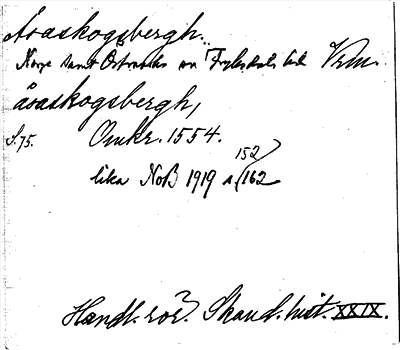 Åsaskogsbergh.
Norge samt Östmarks o Fryksdals hd Vrm.
åsaskogsbergh,
S. 75. Omkr. 1554.
152
lika NoB 1919 s. 162
Handl. rör. Skand. hist. XXIX.